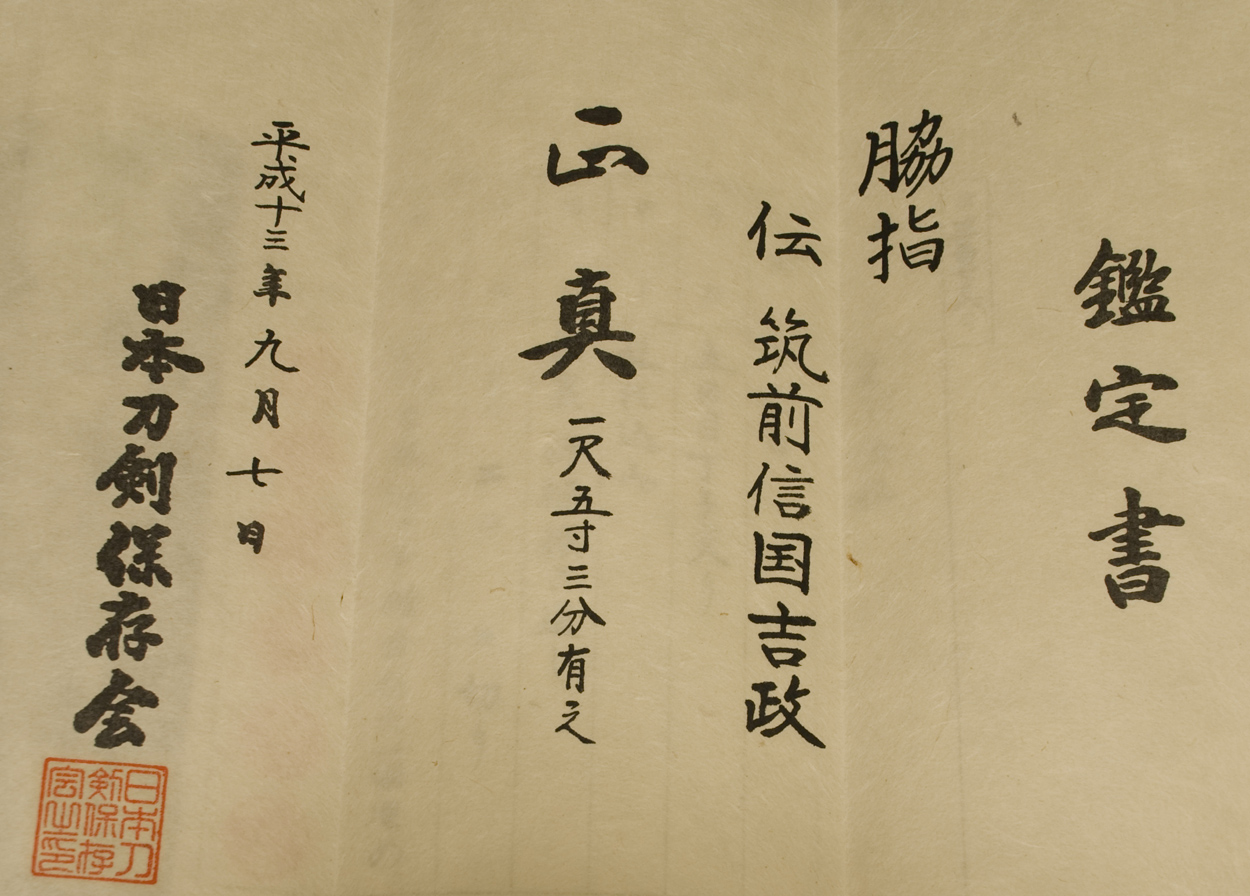 鑑定書
脇指
伝 筑前信国吉政
正真 一尺五寸三分有之
平成十三年九月七日
日本刀剣保存会
日本刀
剣保存
会之印